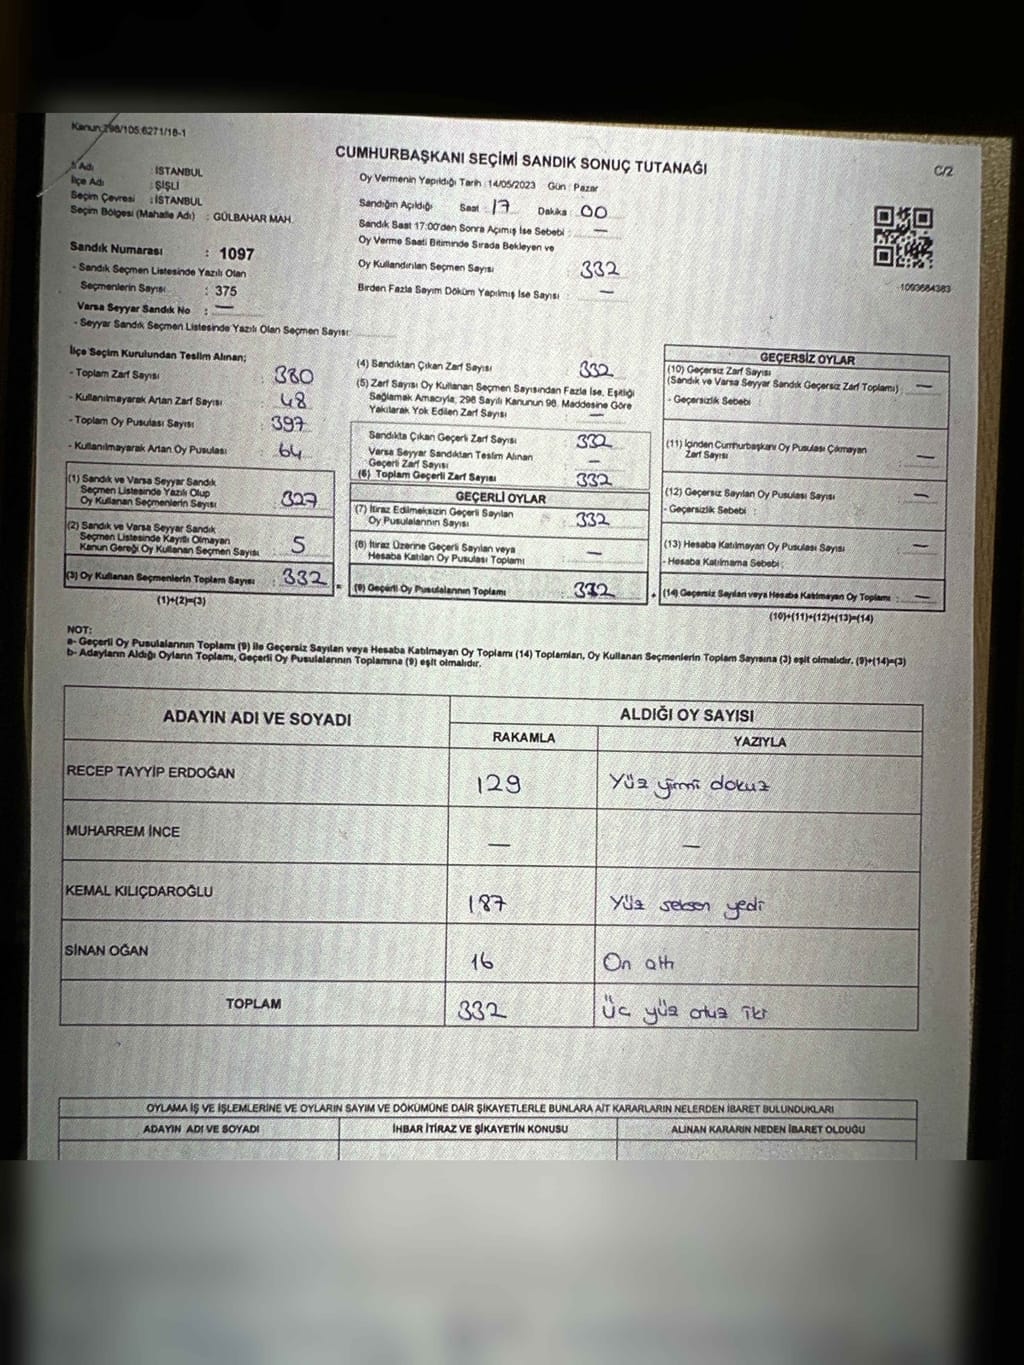 Kanun:298/105,6271/18-1
CUMHURBAŞKANI SEÇİMİ SANDIK SONUÇ TUTANAĞI
C/2
Adı : İSTANBUL
İlçe Adı : ŞİŞLİ
Seçim Çevresi : İSTANBUL
Seçim Bölgesi (Mahalle Adı) : GÜLBAHAR MAH.
Sandık Numarası : 1097
- Sandık Seçmen Listesinde Yazılı Olan
Seçmenlerin Sayısı : 375
Varsa Seyyar Sandık No : —
- Seyyar Sandık Seçmen Listesinde Yazılı Olan Seçmen Sayısı:
Oy Vermenin Yapıldığı Tarih : 14/05/2023 Gün : Pazar
Sandığın Açıldığı Saat : 17 Dakika : 00
Sandık Saat 17:00'den Sonra Açımış İse Sebebi : —
Oy Verme Saati Bitiminde Sırada Bekleyen ve
Oy Kullandırılan Seçmen Sayısı : 332
Birden Fazla Sayım Döküm Yapılmış İse Sayısı : —
1093684383
İlçe Seçim Kurulundan Teslim Alınan;
- Toplam Zarf Sayısı : 380
- Kullanılmayarak Artan Zarf Sayısı : 48
- Toplam Oy Pusulası Sayısı : 397
- Kullanılmayarak Artan Oy Pusulası : 64
(1) Sandık ve Varsa Seyyar Sandık
Seçmen Listesinde Yazılı Olup
Oy Kullanan Seçmenlerin Sayısı : 327
(2) Sandık ve Varsa Seyyar Sandık
Seçmen Listesinde Kayıtlı Olmayan
Kanun Gereği Oy Kullanan Seçmen Sayısı : 5
(3) Oy Kullanan Seçmenlerin Toplam Sayısı : 332 =
(1)+(2)=(3)
(4) Sandıktan Çıkan Zarf Sayısı : 332
(5) Zarf Sayısı Oy Kullanan Seçmen Sayısından Fazla İse, Eşitliği
Sağlamak Amacıyla, 298 Sayılı Kanunun 98. Maddesine Göre
Yakılarak Yok Edilen Zarf Sayısı : —
Sandıkta Çıkan Geçerli Zarf Sayısı : 332
Varsa Seyyar Sandıktan Teslim Alınan
Geçerli Zarf Sayısı : —
(6) Toplam Geçerli Zarf Sayısı : 332
GEÇERLİ OYLAR
(7) İtiraz Edilmeksizin Geçerli Sayılan
Oy Pusulalarının Sayısı : 332
(8) İtiraz Üzerine Geçerli Sayılan veya
Hesaba Katılan Oy Pusulası Toplamı : —
(9) Geçerli Oy Pusulalarının Toplamı : 332 +
GEÇERSİZ OYLAR
(10) Geçersiz Zarf Sayısı
(Sandık ve Varsa Seyyar Sandık Geçersiz Zarf Toplamı) : —
- Geçersizlik Sebebi :
(11) İçinden Cumhurbaşkanı Oy Pusulası Çıkmayan
Zarf Sayısı : —
(12) Geçersiz Sayılan Oy Pusulası Sayısı : —
- Geçersizlik Sebebi :
(13) Hesaba Katılmayan Oy Pusulası Sayısı : —
- Hesaba Katılmama Sebebi :
(14) Geçersiz Sayılan veya Hesaba Katılmayan Oy Toplamı : —
(10)+(11)+(12)+(13)=(14)
NOT:
a- Geçerli Oy Pusulalarının Toplamı (9) ile Geçersiz Sayılan veya Hesaba Katılmayan Oy Toplamı (14) Toplamları, Oy Kullanan Seçmenlerin Toplam Sayısına (3) eşit olmalıdır. (9)+(14)=(3)
b- Adayların Aldığı Oyların Toplamı, Geçerli Oy Pusulalarının Toplamına (9) eşit olmalıdır.
ADAYIN ADI VE SOYADI ALDIĞI OY SAYISI
RAKAMLA YAZIYLA
RECEP TAYYİP ERDOĞAN 129 Yüz yirmi dokuz
MUHARREM İNCE — —
KEMAL KILIÇDAROĞLU 187 Yüz seksen yedi
SİNAN OĞAN 16 On altı
TOPLAM 332 Üç yüz otuz iki
OYLAMA İŞ VE İŞLEMLERİNE VE OYLARIN SAYIM VE DÖKÜMÜNE DAİR ŞİKAYETLERLE BUNLARA AİT KARARLARIN NELERDEN İBARET BULUNDUKLARI
ADAYIN ADI VE SOYADI İHBAR İTİRAZ VE ŞİKAYETİN KONUSU ALINAN KARARIN NEDEN İBARET OLDUĞU